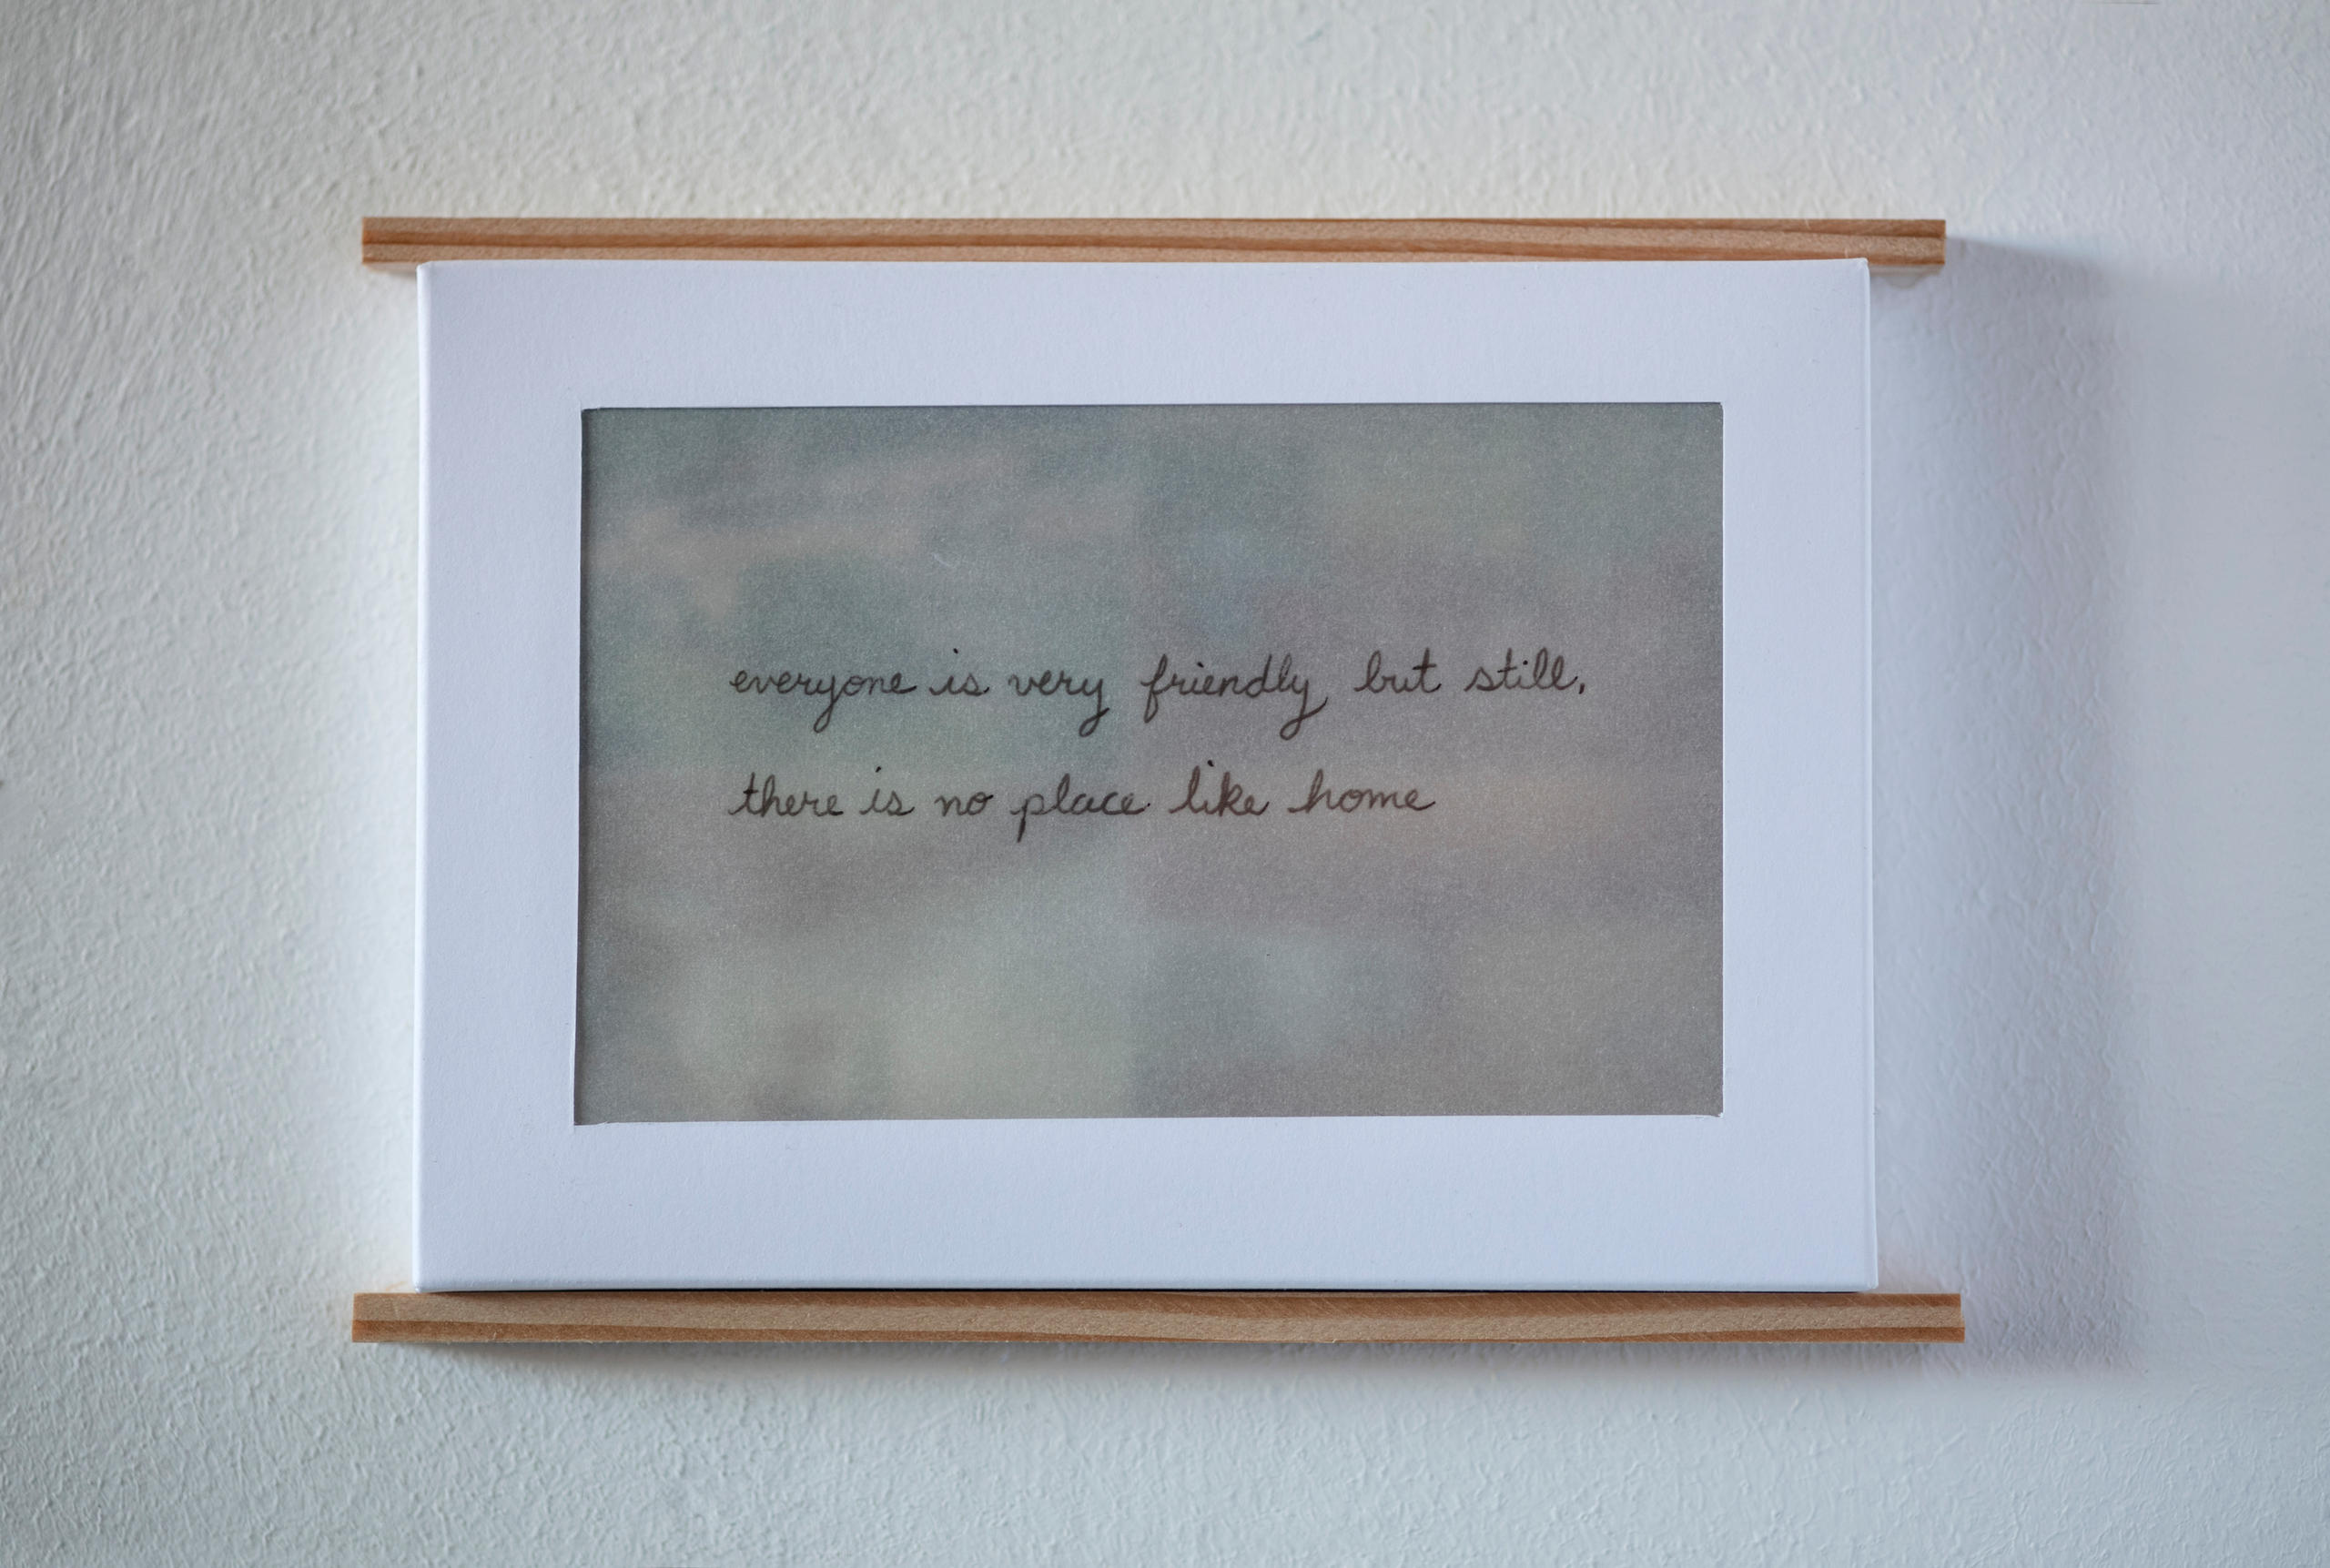 everyone is very friendly but still,
there is no place like home